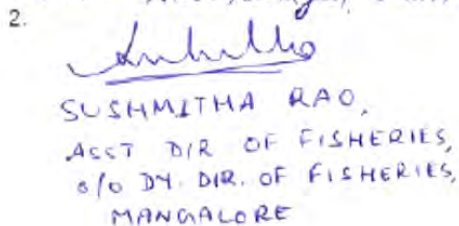 2.
SUSHMITHA RAO,
ASST DIR OF FISHERIES,
O/O DY. DIR. OF FISHERIES,
MANGALORE